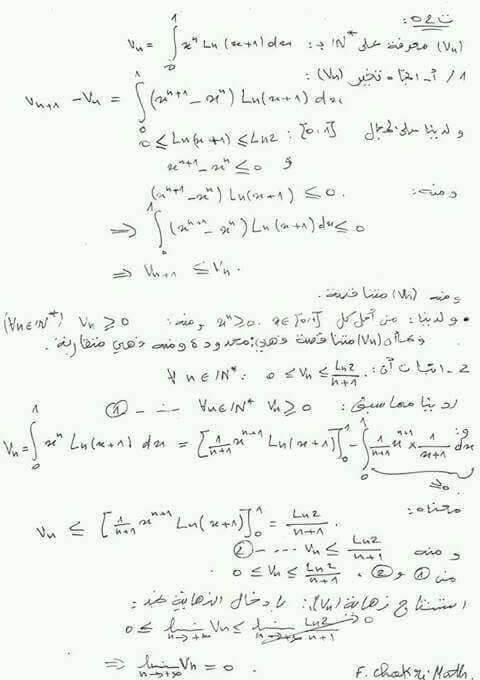 ت02:
(Vn) معرفة على IN* بـ: Vn = ∫₀¹ xⁿ Ln(x+1) dx
1/ أ- اتجاه تغير (Vn):
Vn+1 − Vn = ∫₀¹ (xⁿ⁺¹ − xⁿ) Ln(x+1) dx
و لدينا على المجال [0,1]: 0 ≤ Ln(x+1) ≤ Ln2
و xⁿ⁺¹ − xⁿ ≤ 0
ومنه: (xⁿ⁺¹ − xⁿ) Ln(x+1) ≤ 0.
⇒ ∫₀¹ (xⁿ⁺¹ − xⁿ) Ln(x+1) dx ≤ 0
⇒ Vn+1 ≤ Vn.
ومنه (Vn) متناقصة.
• ولدينا: من أجل كل x∈[0,1] xⁿ ≥ 0. ومنه: Vn ≥ 0 (∀n∈IN*)
وبما أن (Vn) متناقصة فهي محدودة ومنه فهي متقاربة.
2- اثبات أن: ∀ n∈IN*: 0 ≤ Vn ≤ Ln2/(n+1)
لدينا مما سبق: ∀n∈IN* Vn ≥ 0 ... ①
و: Vn = ∫₀¹ xⁿ Ln(x+1) dx = [1/(n+1) xⁿ⁺¹ Ln(x+1)]₀¹ − ∫₀¹ 1/(n+1) xⁿ⁺¹ × 1/(x+1) dx
≥0
معناه:
Vn ≤ [1/(n+1) xⁿ⁺¹ Ln(x+1)]₀¹ = Ln2/(n+1).
ومنه Vn ≤ Ln2/(n+1) ... ②
من ① و ②، 0 ≤ Vn ≤ Ln2/(n+1).
استنتاج نهاية (Vn): بادخال النهاية نجد:
0 ≤ lim n→+∞ Vn ≤ lim n→+∞ Ln2/(n+1) 0
⇒ lim n→+∞ Vn = 0.
F. chakri Math.